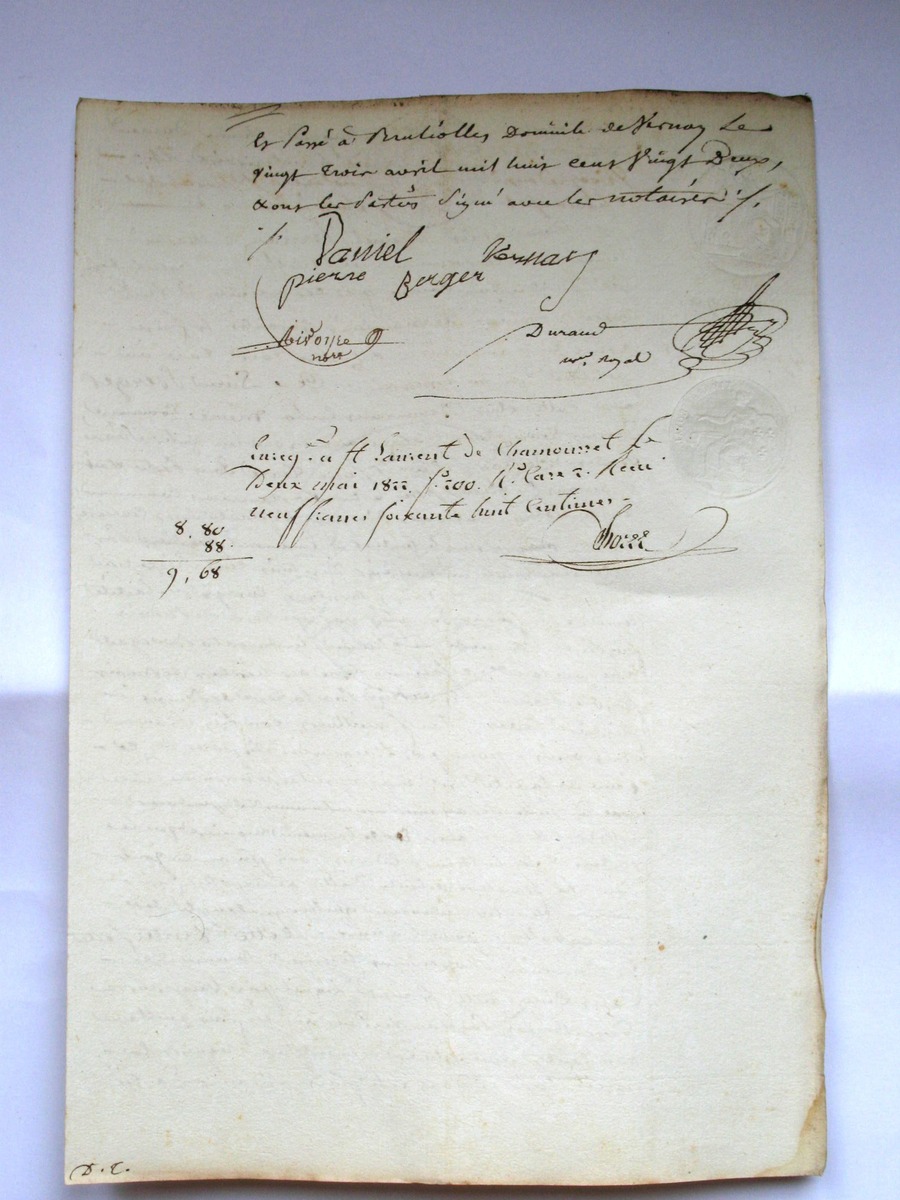 et Passé à Bruliolles Domicile de Vernay Le
vingt trois avril mil huit cent Vingt Deux,
& ont les Parties Signé avec les notaires ./.
Daniel Vernay
pierre Berger
nore
Durand
nre. Royal
Enreg.é a St Laurent de Chamousset Le
Deux mai 1822. f.o 200. R.o Case 2. Reçu
neuf francs soixante huit Centimes.
8. 80
88.
9, 68
D. C.